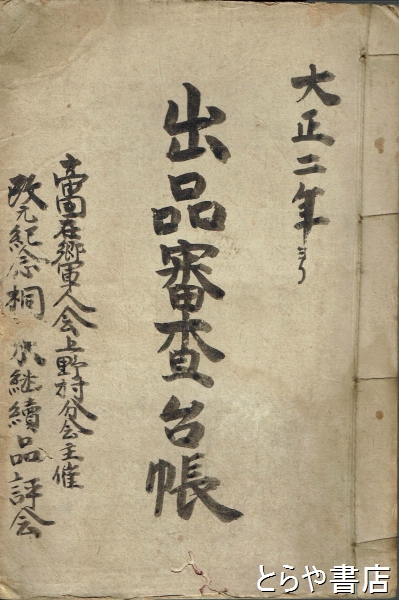 大正二年ヨリ
出品審査台帳
帝国在郷軍人会上野村分会主催
改元紀念桐 水継續品評会
とらや書店